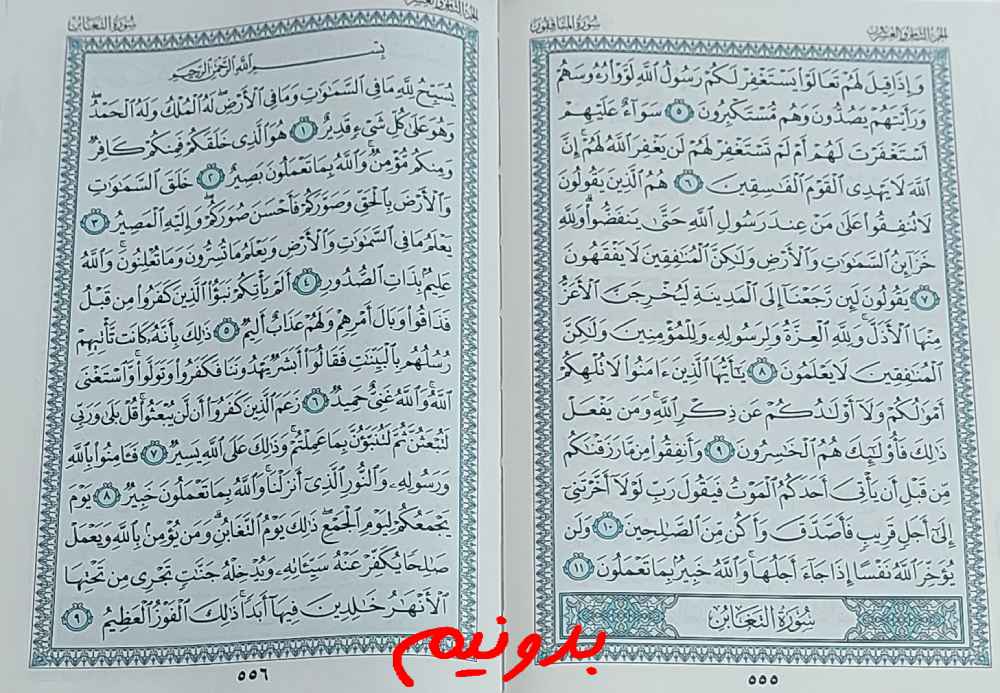 الجزء الثامن والعشرون
سورة المنافقون
وَإِذَا قِيلَ لَهُمْ تَعَالَوْا۟ يَسْتَغْفِرْ لَكُمْ رَسُولُ ٱللَّهِ لَوَّوْا۟ رُءُوسَهُمْ
وَرَأَيْتَهُمْ يَصُدُّونَ وَهُم مُّسْتَكْبِرُونَ ٥ سَوَآءٌ عَلَيْهِمْ
أَسْتَغْفَرْتَ لَهُمْ أَمْ لَمْ تَسْتَغْفِرْ لَهُمْ لَن يَغْفِرَ ٱللَّهُ لَهُمْ ۚ إِنَّ
ٱللَّهَ لَا يَهْدِى ٱلْقَوْمَ ٱلْفَـٰسِقِينَ ٦ هُمُ ٱلَّذِينَ يَقُولُونَ
لَا تُنفِقُوا۟ عَلَىٰ مَنْ عِندَ رَسُولِ ٱللَّهِ حَتَّىٰ يَنفَضُّوا۟ ۗ وَلِلَّهِ
خَزَآئِنُ ٱلسَّمَـٰوَٰتِ وَٱلْأَرْضِ وَلَـٰكِنَّ ٱلْمُنَـٰفِقِينَ لَا يَفْقَهُونَ
٧ يَقُولُونَ لَئِن رَّجَعْنَآ إِلَى ٱلْمَدِينَةِ لَيُخْرِجَنَّ ٱلْأَعَزُّ
مِنْهَا ٱلْأَذَلَّ ۚ وَلِلَّهِ ٱلْعِزَّةُ وَلِرَسُولِهِۦ وَلِلْمُؤْمِنِينَ وَلَـٰكِنَّ
ٱلْمُنَـٰفِقِينَ لَا يَعْلَمُونَ ٨ يَـٰٓأَيُّهَا ٱلَّذِينَ ءَامَنُوا۟ لَا تُلْهِكُمْ
أَمْوَٰلُكُمْ وَلَآ أَوْلَـٰدُكُمْ عَن ذِكْرِ ٱللَّهِ ۚ وَمَن يَفْعَلْ
ذَٰلِكَ فَأُو۟لَـٰٓئِكَ هُمُ ٱلْخَـٰسِرُونَ ٩ وَأَنفِقُوا۟ مِن مَّا رَزَقْنَـٰكُم
مِّن قَبْلِ أَن يَأْتِىَ أَحَدَكُمُ ٱلْمَوْتُ فَيَقُولَ رَبِّ لَوْلَآ أَخَّرْتَنِىٓ
إِلَىٰٓ أَجَلٍ قَرِيبٍ فَأَصَّدَّقَ وَأَكُن مِّنَ ٱلصَّـٰلِحِينَ ١٠ وَلَن
يُؤَخِّرَ ٱللَّهُ نَفْسًا إِذَا جَآءَ أَجَلُهَا ۚ وَٱللَّهُ خَبِيرٌۢ بِمَا تَعْمَلُونَ ١١
سُورَةُ التَّغَابُن
٥٥٥
الجزء الثامن والعشرون
سورة التغابن
بِسْمِ ٱللَّهِ ٱلرَّحْمَـٰنِ ٱلرَّحِيمِ
يُسَبِّحُ لِلَّهِ مَا فِى ٱلسَّمَـٰوَٰتِ وَمَا فِى ٱلْأَرْضِ ۖ لَهُ ٱلْمُلْكُ وَلَهُ ٱلْحَمْدُ ۖ
وَهُوَ عَلَىٰ كُلِّ شَىْءٍ قَدِيرٌ ١ هُوَ ٱلَّذِى خَلَقَكُمْ فَمِنكُمْ كَافِرٌ
وَمِنكُم مُّؤْمِنٌ ۚ وَٱللَّهُ بِمَا تَعْمَلُونَ بَصِيرٌ ٢ خَلَقَ ٱلسَّمَـٰوَٰتِ
وَٱلْأَرْضَ بِٱلْحَقِّ وَصَوَّرَكُمْ فَأَحْسَنَ صُوَرَكُمْ ۖ وَإِلَيْهِ ٱلْمَصِيرُ ٣
يَعْلَمُ مَا فِى ٱلسَّمَـٰوَٰتِ وَٱلْأَرْضِ وَيَعْلَمُ مَا تُسِرُّونَ وَمَا تُعْلِنُونَ ۚ وَٱللَّهُ
عَلِيمٌۢ بِذَاتِ ٱلصُّدُورِ ٤ أَلَمْ يَأْتِكُمْ نَبَؤُا۟ ٱلَّذِينَ كَفَرُوا۟ مِن قَبْلُ
فَذَاقُوا۟ وَبَالَ أَمْرِهِمْ وَلَهُمْ عَذَابٌ أَلِيمٌ ٥ ذَٰلِكَ بِأَنَّهُۥ كَانَت تَّأْتِيهِمْ
رُسُلُهُم بِٱلْبَيِّنَـٰتِ فَقَالُوٓا۟ أَبَشَرٌ يَهْدُونَنَا فَكَفَرُوا۟ وَتَوَلَّوا۟ ۚ وَّٱسْتَغْنَى
ٱللَّهُ ۚ وَٱللَّهُ غَنِىٌّ حَمِيدٌ ٦ زَعَمَ ٱلَّذِينَ كَفَرُوٓا۟ أَن لَّن يُبْعَثُوا۟ ۚ قُلْ بَلَىٰ وَرَبِّى
لَتُبْعَثُنَّ ثُمَّ لَتُنَبَّؤُنَّ بِمَا عَمِلْتُمْ ۚ وَذَٰلِكَ عَلَى ٱللَّهِ يَسِيرٌ ٧ فَـَٔامِنُوا۟ بِٱللَّهِ
وَرَسُولِهِۦ وَٱلنُّورِ ٱلَّذِىٓ أَنزَلْنَا ۚ وَٱللَّهُ بِمَا تَعْمَلُونَ خَبِيرٌ ٨ يَوْمَ
يَجْمَعُكُمْ لِيَوْمِ ٱلْجَمْعِ ۖ ذَٰلِكَ يَوْمُ ٱلتَّغَابُنِ ۗ وَمَن يُؤْمِنۢ بِٱللَّهِ وَيَعْمَلْ
صَـٰلِحًا يُكَفِّرْ عَنْهُ سَيِّـَٔاتِهِۦ وَيُدْخِلْهُ جَنَّـٰتٍ تَجْرِى مِن تَحْتِهَا
ٱلْأَنْهَـٰرُ خَـٰلِدِينَ فِيهَآ أَبَدًا ۚ ذَٰلِكَ ٱلْفَوْزُ ٱلْعَظِيمُ ٩
٥٥٦
بدونیم